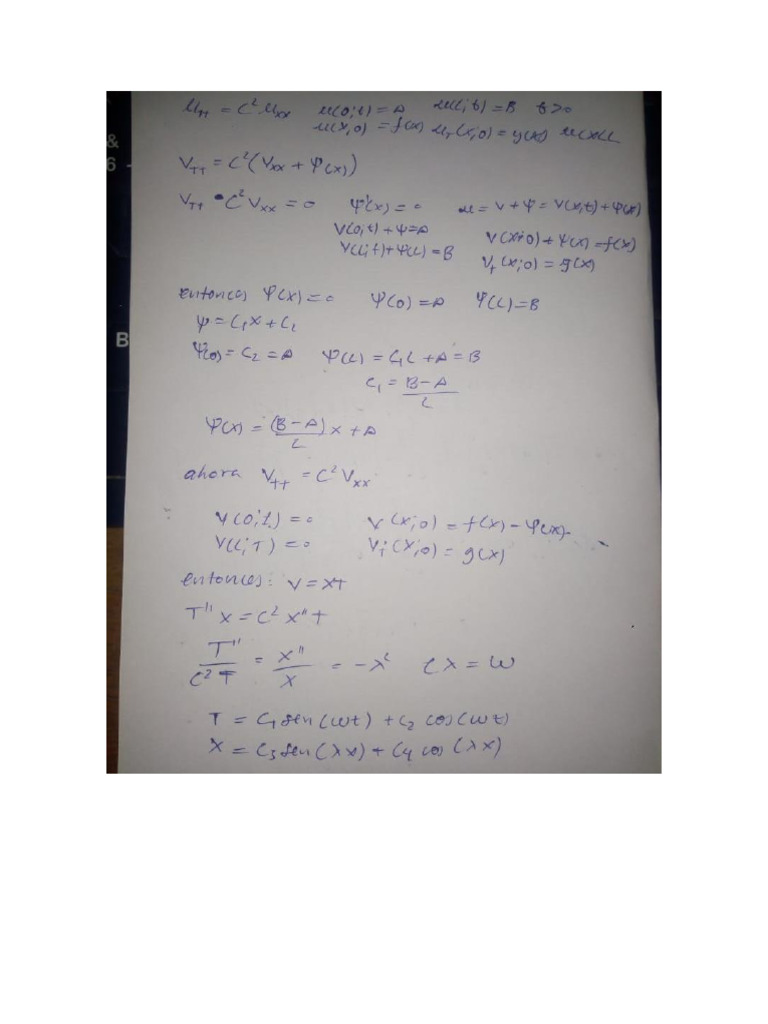 &
6 -
B
u_tt = c² u_xx   u(0;t) = A   u(L;t) = B   t>0
u(x,0) = f(x)   u_t(x;0) = g(x)
V_tt = c²(V_xx + Ψ(x))
V_tt • c² V_xx = 0   Ψ'(x) = 0   u = v + Ψ = v(x,t) + Ψ(x)
V(0,t) + Ψ = A
V(L;t) + Ψ(L) = B
V(x;0) + Ψ(x) = f(x)
V_t(x;0) = g(x)
entonces Ψ(x) = 0   Ψ(0) = A   Ψ(L) = B
Ψ = C₁x + C₂
Ψ(0) = C₂ = A   Ψ(L) = C₁L + A = B
C₁ = (B-A)/L
Ψ(x) = (B-A)/L x + A
ahora V_tt = c² V_xx
V(0;t) = 0   V(x;0) = f(x) - Ψ(x)
V(L;T) = 0   V_t(x;0) = g(x)
entonces: V = XT
T'' X = c² X'' T
T''/(c² T) = X''/X = -λ²   cλ = ω
T = C₁ sen(ωt) + C₂ cos(ωt)
X = C₃ sen(λx) + C₄ cos(λx)